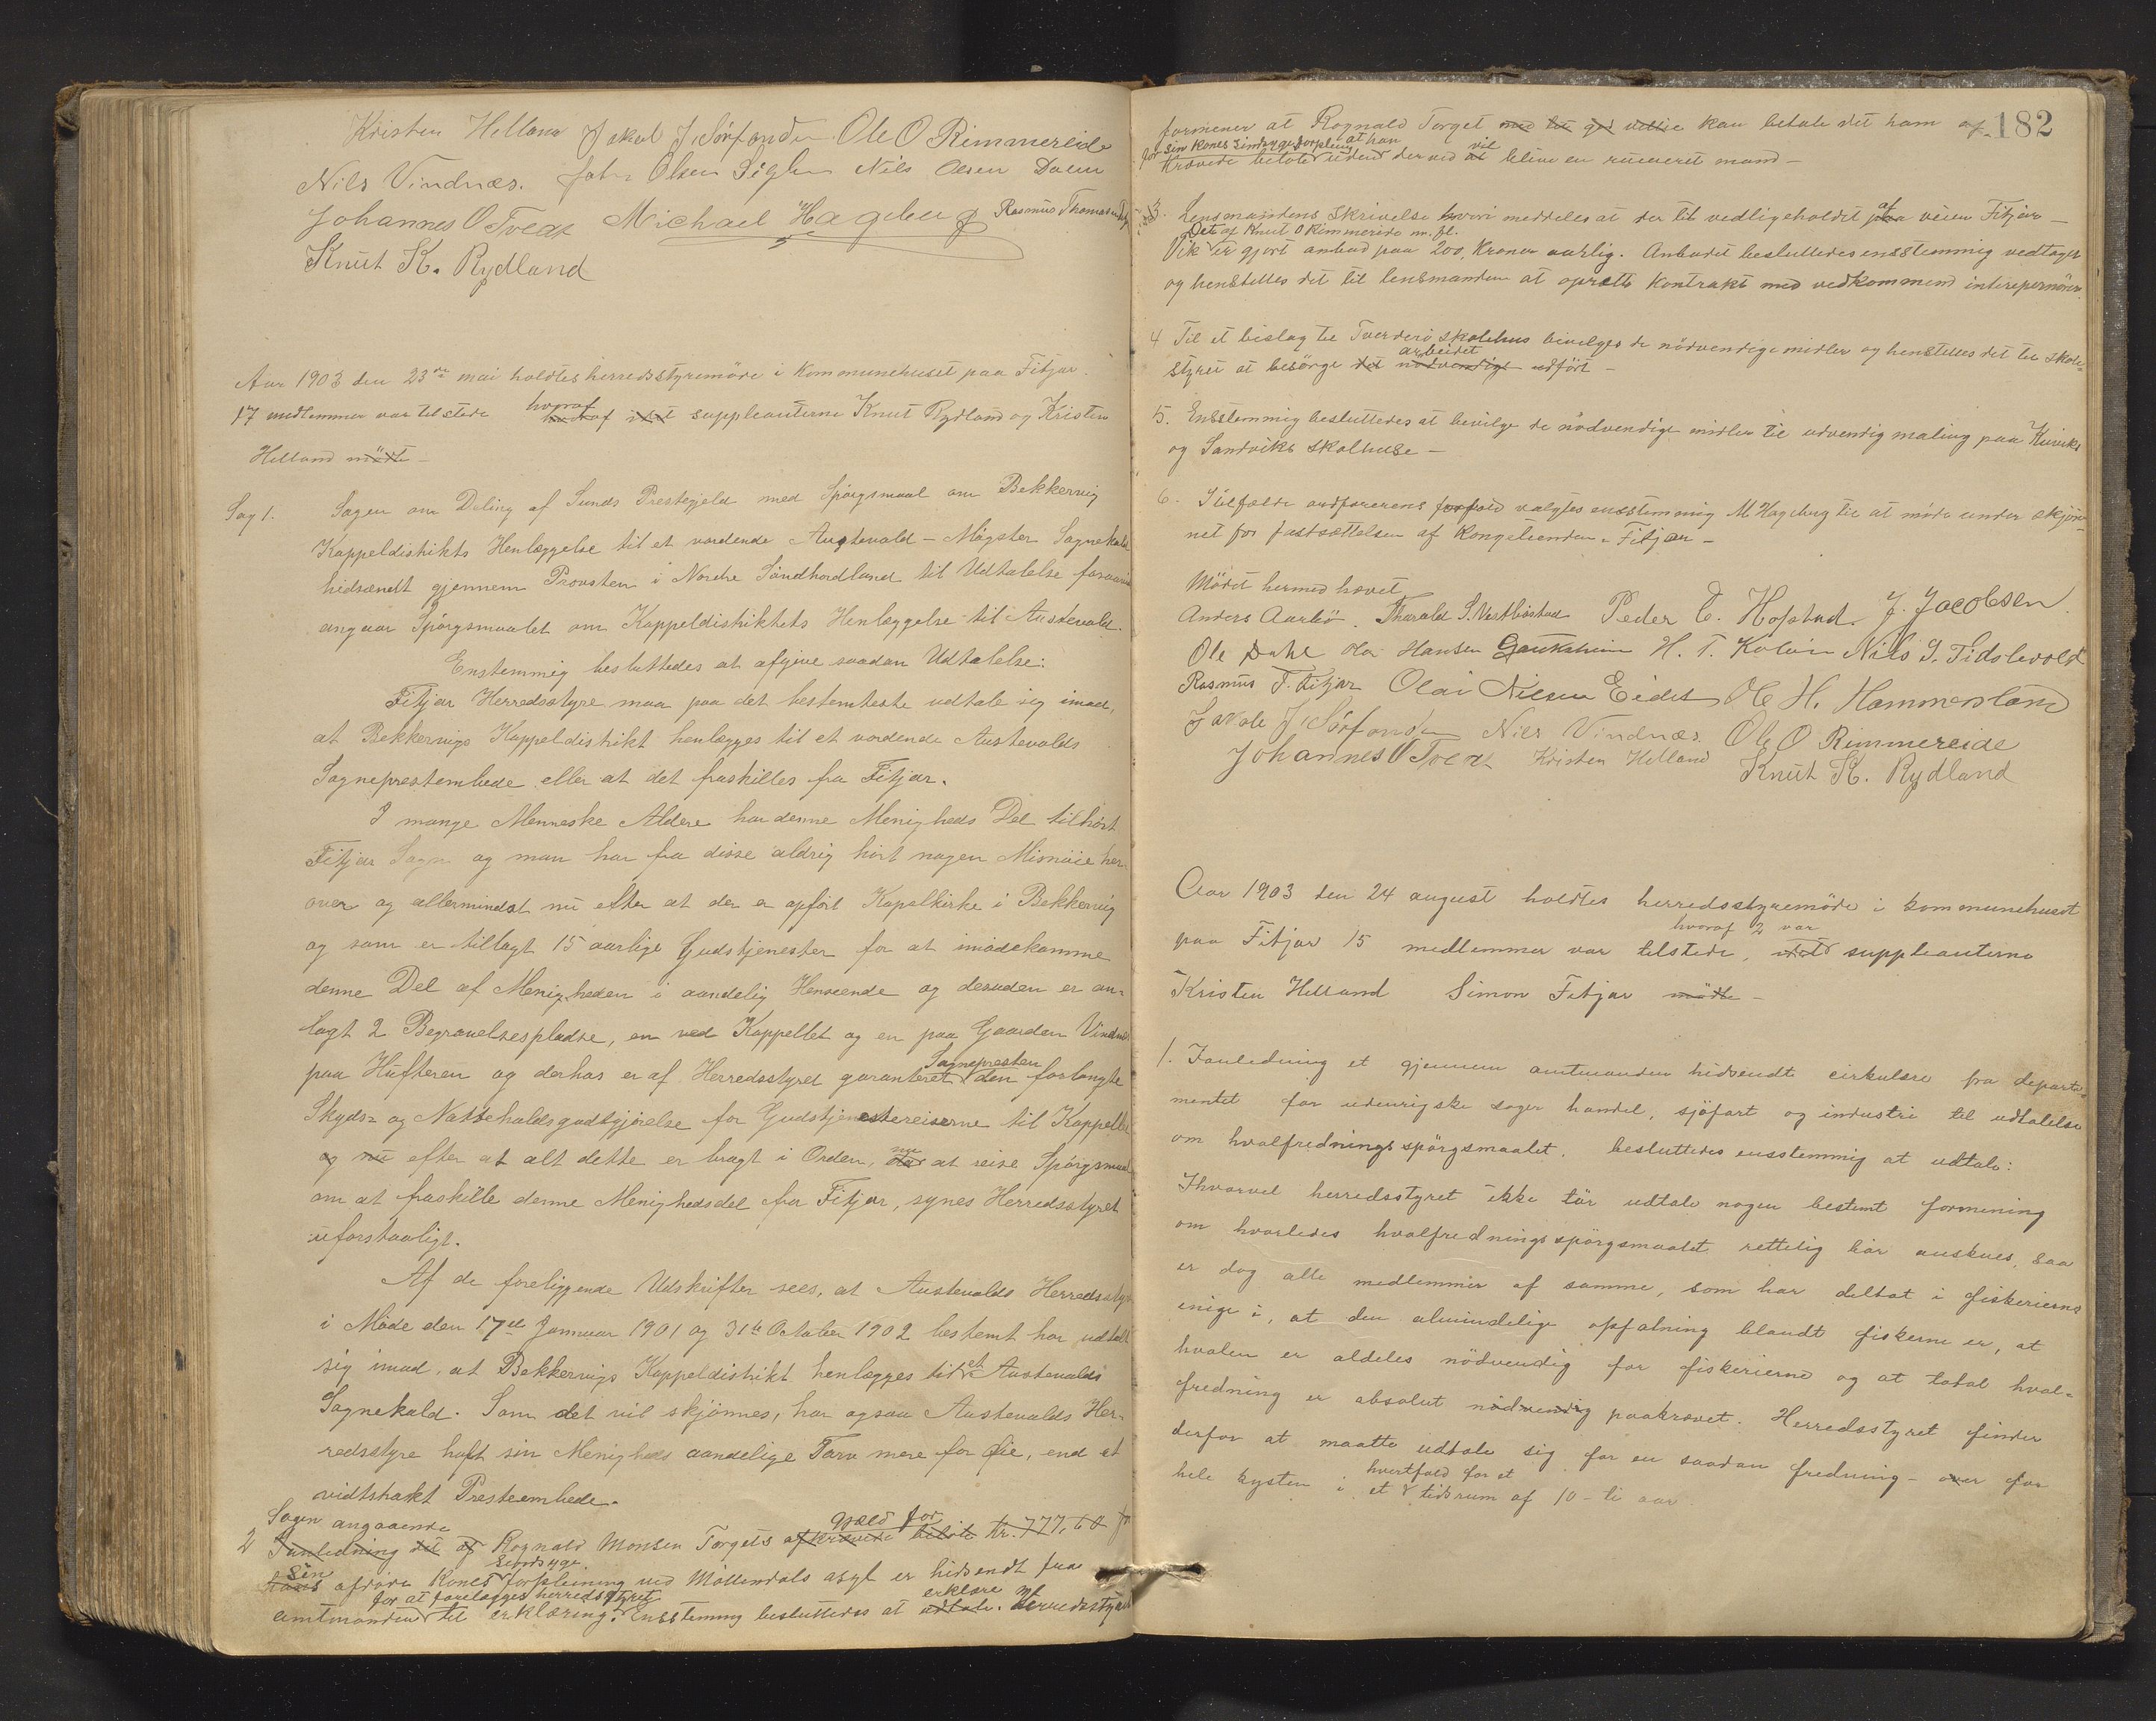 Kristen Helland Jakob J. Sörfonden Ole O Rimmereide
Nils Vindnæs. John Olsen Sigle Nils Olsen Dalen
Johannes O Tveat Michael Hageberg Rasmus Thomassen
Knut K. Rydland
Aar 1903 den 23de mai holdtes herredsstyremöde i Kommunehuset paa Fitjar.
17 medlemmer var tilstede hvoraf suppleanterne Knut Rydland og Kristen
Helland mödte –
Sag 1. Sagen om Deling af Sunds Prestegjeld med Spörgsmaal om Bekkervig
Kappeldistrikts Henlæggelse til et vordende Austevold – Møgster Sognekald
hidsendt gjennem Provsten i Nordre Söndhordland til Udtalelse forsaavidt
angaar Spörgsmaalet om Kappeldistriktets Henlæggelse til Austevold.
Enstemmig besluttedes at afgive saadan Udtalelse:
Fitjar Herredsstyre maa paa det bestemteste udtale sig imod,
at Bekkervigs Kappeldistrikt henlægges til et vordende Austevolds
Sogneprestembede eller at det fraskilles fra Fitjar.
I mange Menneske Aldere har denne Menigheds Del tilhört
Fitjar Sogn og man har fra disse aldrig hört nogen Misnöie her-
over og allermindst nu efter at der er opfört Kapelkirke i Bekkervig
og som er tillagt 15 aarlige Gudstjenester for at imödekomme
denne Del af Menigheden i aandelig Henseende og desuden er an-
lagt 2 Begravelsespladse, en ved Kappellet og en paa Gaarden Vindnes
paa Hufteren og derhos er af Herredsstyret garanteret Sognepresten den forlangte
Skyds- og Natteholdsgodtgjörelse for Gudstjenestereiserne til Kappellet
og nu efter at alt dette er bragt i Orden, nu at reise Spörgsmaal
om at fraskille denne Menighedsdel fra Fitjar, synes Herredsstyret
uforstaaligt.
Af de foreliggende Udskrifter sees, at Austevolds Herredsstyre
i Möde den 17de Januar 1901 og 31te October 1902 bestemt har udtalt
sig imod, at Bekkervigs Kappeldistrikt henlægges til et Austevolds
Sognekald. Som det vil skjönnes, har ogsaa Austevolds Her-
redsstyre haft sin Menigheds aandelige Tarv mere for Öie, end et
vidtstrakt Presteembede.
Sagen angaaende gjæld for
2 Anledning det af Rognald Monsen Torgets afkrævede belöb Kr. 777,60 for
sin hans afdöde Kones Sindsyge forpleining ved Möllendals asyl er hidsendt fra
for at forelægges herredsstyret erklære
amtmanden til erklæring. Enstemmig besluttedes at udtale. Herredsstyret
182
formener at Rognald Torget med sin god villie kan betale det ham af-
for sin kones Sindsygeforpleining at han vil
krævede belöb uden derved at blive en ruineret mand –
3. Lensmandens skrivelse hvori meddeles at der til vedligeholdet af paa veien Fitjar –
Det af Knut O Rimmereide m. fl.
Vik er gjort anbud paa 200 Kroner aarlig. Anbudet besluttedes enstemmig vedtaget
og henstilles det til lensmanden at oprette kontrakt med vedkommend interepernörer.
4 Til et bislag til Tverderö skolehus bevilges de nödvendige midler og henstilles det til skole-
styret at besörge det nödvendige arbeidet udfört –
5. Enstemmig besluttedes at bevilge de nödvendige midler til udvendig maling paa Kuiviks
og Sandviks skolhuse –
6. I tilfælde ordförerens forfald valgtes enstemmig M Hageberg til at möde under skjön-
net for fastsættelsen af Kongetienden i Fitjar –
Mödet hermed hævet
Anders Aarbö. Tharald S. Vestböstad Peder C. Hopstad. J. Jacobsen.
Ole Dahl Ola Hansen Gaukheim H. T. Koløen Nils S. Tidslevold
Rasmus T. Fitjar Olai Nilsen Eidet Ole H. Hammersland
Jakob J. Sörfonden Nils Vindnæs. Ole O Rimmereide
Johannes O Tveat Kristen Helland Knut K. Rydland
Aar 1903 den 24 august holdtes herredsstyremöde i kommunehuset
hvoraf 2 var
paa Fitjar 15 medlemmer var tilstede, suppleanterne
Kristen Helland Simon Fitjar mödte –
1. I anledning et gjennem amtmanden hidsendt cirkulære fra departe-
mentet for udenrigske sager handel, sjöfart og industri til udtalelse
om hvalfrednings spörgsmaalet, besluttedes enstemmig at udtale:
Ihvorvel herredsstyret ikke tör udtale nogen bestemt formening
om hvorledes hvalfrednings spörgsmaalet rettelig bör anskues, saa
er dog alle medlemmer af samme, som har deltat i fiskerierne
enige i, at den almindelige opfatning blandt fiskerne er, at
hvalen er aldeles nödvendig for fiskerierne og at total hval-
fredning er absolut nödvendig paakrævet. Herredsstyret finder
derfor at maatte udtale sig for en saadan fredning – over for
hele kysten i hvertfald for et et tidsrum af 10 – ti aar.